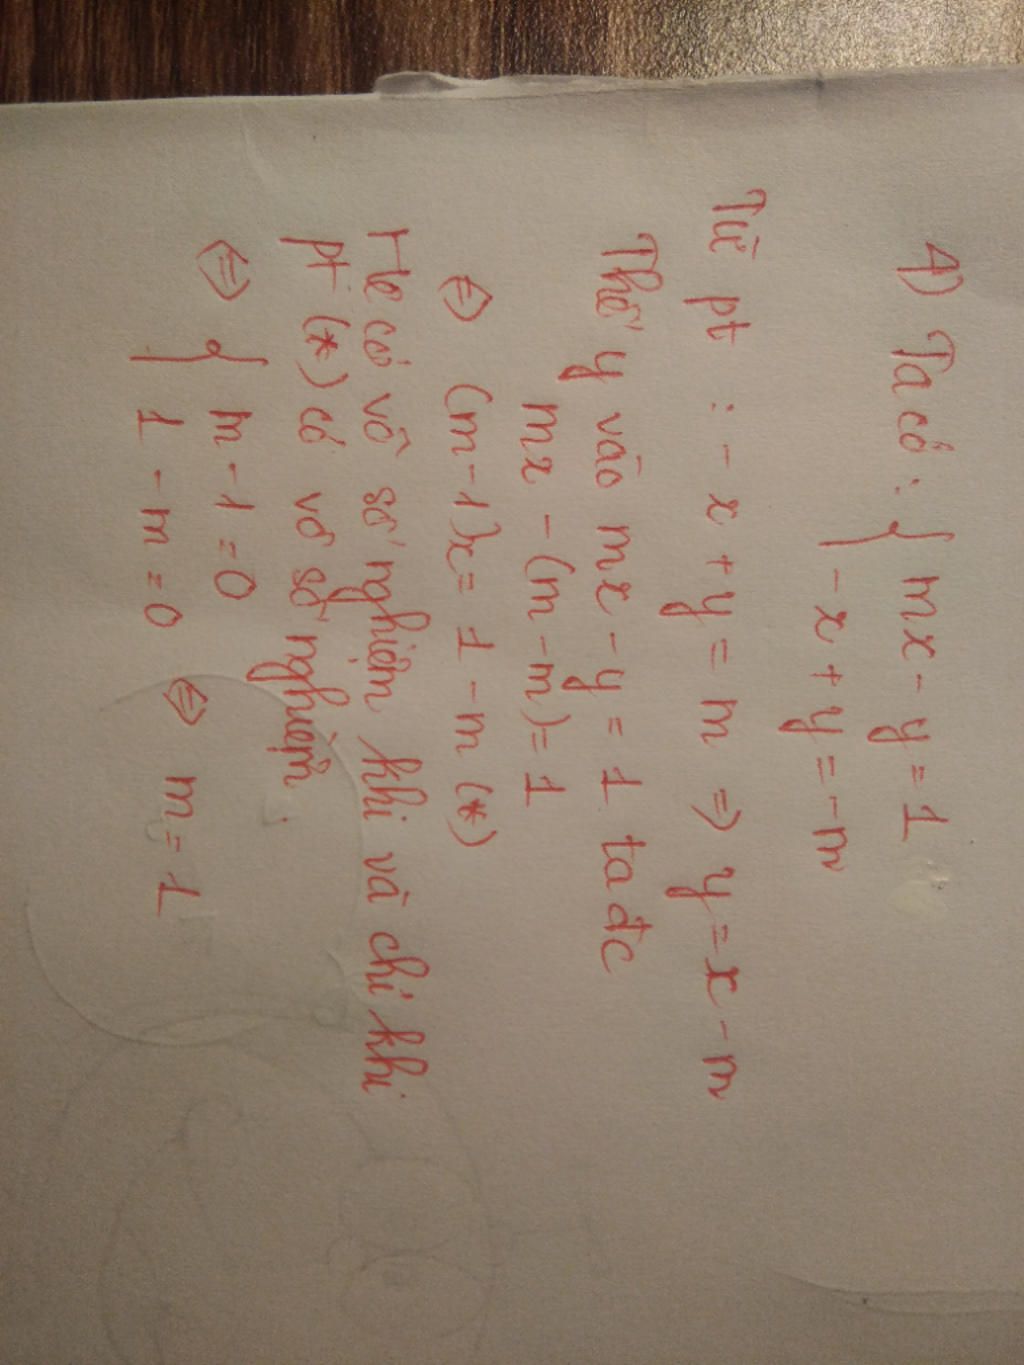 1) Ta có: { mx - y = 1
- x + y = - m
Từ pt : - x + y = m ⇒ y = x - m
Thế y vào mx - y = 1 ta đc
mx - (m - m) = 1
⇔ (m - 1)x = 1 - m (*)
Hệ có vô số nghiệm khi và chỉ khi
pt (*) có vô số nghiệm.
⇔ { m - 1 = 0
1 - m = 0 ⇔ m = 1